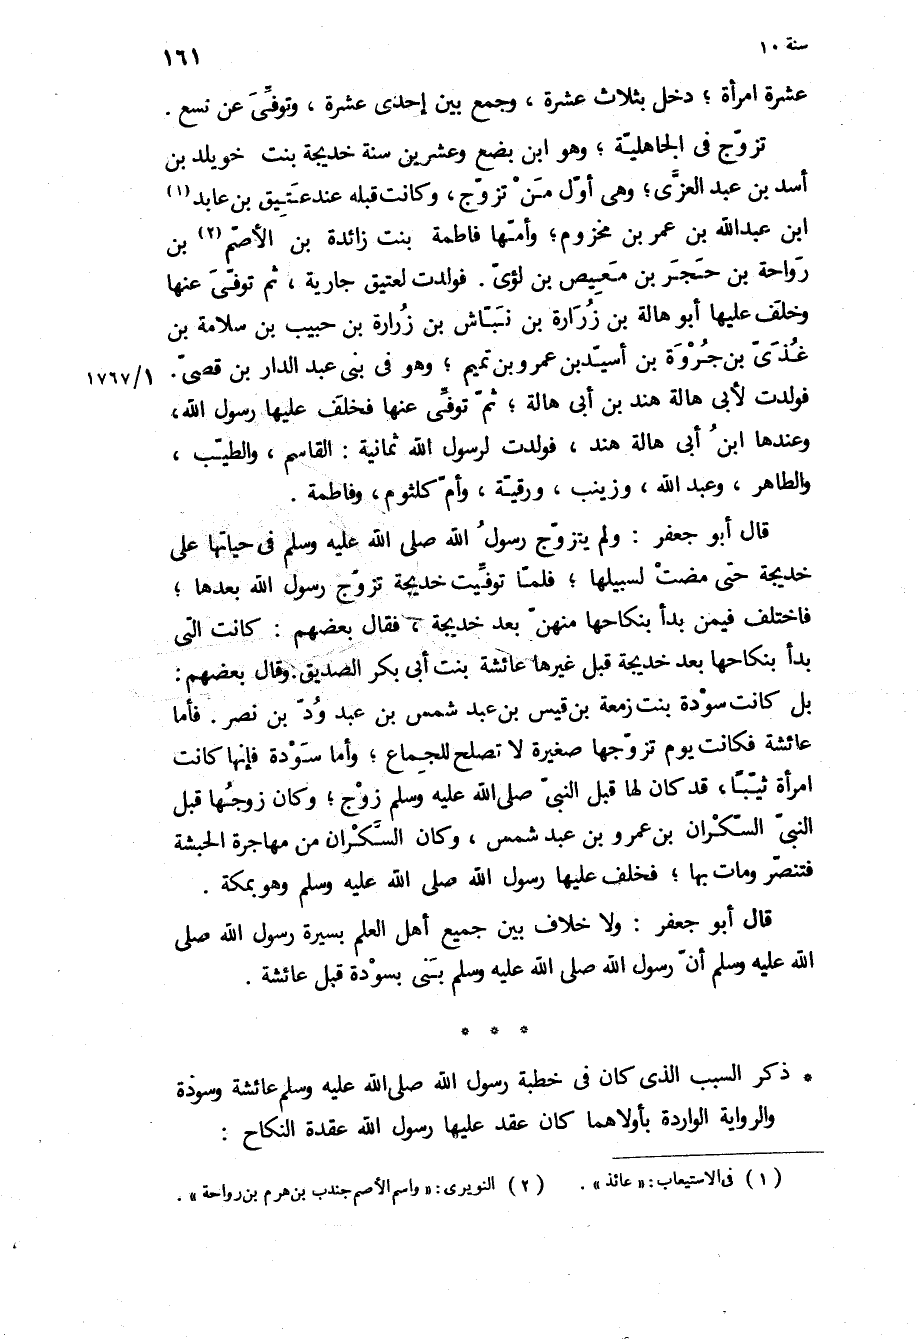 سنة ١٠
١٦١
عشرة امرأة ؛ دخل بثلاث عشرة ، وجمع بين إحدى عشرة ، وتوفِّىَ عن تسع .
تزوّج فى الجاهليّة ؛ وهو ابن بضع وعشرين سنة خديجة بنت خويلد بن
أسد بن عبد العزَّى؛ وهى أوّل مَنْ تزوّج، وكانت قبله عند عتيق بن عابد (١)
ابن عبدالله بن عمر بن مخزوم؛ وأمّها فاطمة بنت زائدة بن الأصمّ (٢) بن
رَواحة بن حَجَر بن مَعِيص بن لؤىّ . فولدت لعتيق جارية ، ثم توفّىَ عنها
وخلَف عليها أبو هالة بن زُرَارة بن نبّاش بن زُرارة بن حبيب بن سلامة بن
غُذَىّ بن جُرْوَة بن أسيّد بن عمرو بن تميم ؛ وهو فى بنى عبد الدار بن قصىّ.
١٧٦٧/١
فولدت لأبى هالة هند بن أبى هالة ؛ ثمّ توفِّى عنها فخلَف عليها رسول الله،
وعندها ابنُ أبى هالة هند ، فولدت لرسول الله ثمانية : القاسم ، والطيّب ،
والطاهر ، وعبد الله ، وزينب ، ورقيّة ، وأمّ كلثوم، وفاطمة .
قال أبو جعفر : ولم يتزوّج رسولُ الله صلى الله عليه وسلم فى حياتها على
خديجة حتى مضتْ لسبيلها ؛ فلمّا توفِّيت خديجة تزوّج رسول الله بعدها ؛
فاختلف فيمن بدأ بنكاحها منهنّ بعد خديجة ، فقال بعضهم : كانت التى
بدأ بنكاحها بعد خديجة قبل غيرها عائشة بنت أبى بكر الصديق. وقال بعضهم :
بل كانت سوْدة بنت زمعة بن قيس بن عبد شمس بن عبد وُدّ بن نصر . فأما
عائشة فكانت يوم تزوّجها صغيرة لا تصلح للجماع ؛ وأما سَوْدة فإنها كانت
امرأة ثيّبًا، قد كان لها قبل النبىّ صلى الله عليه وسلم زوْج ؛ وكان زوجُها قبل
النبىّ السَّكْران بن عمرو بن عبد شمس ، وكان السَّكْران من مهاجرة الحبشة
فتنصّر ومات بها ؛ فخلف عليها رسول الله صلى الله عليه وسلم وهو بمكة .
قال أبو جعفر : ولا خلاف بين جميع أهل العلم بسيرة رسول الله صلى
الله عليه وسلم أنّ رسول الله صلى الله عليه وسلم بَنَى بسوْدة قبل عائشة .
* * *
* ذكر السبب الذى كان فى خطبة رسول الله صلى الله عليه وسلم عائشة وسودة
والرواية الواردة بأولاهما كان عقد عليها رسول الله عقدة النكاح :
(١) فى الاستيعاب : « عائذ » . (٢) النويرى : « واسم الأصم جندب بن هرم بن رواحة » .